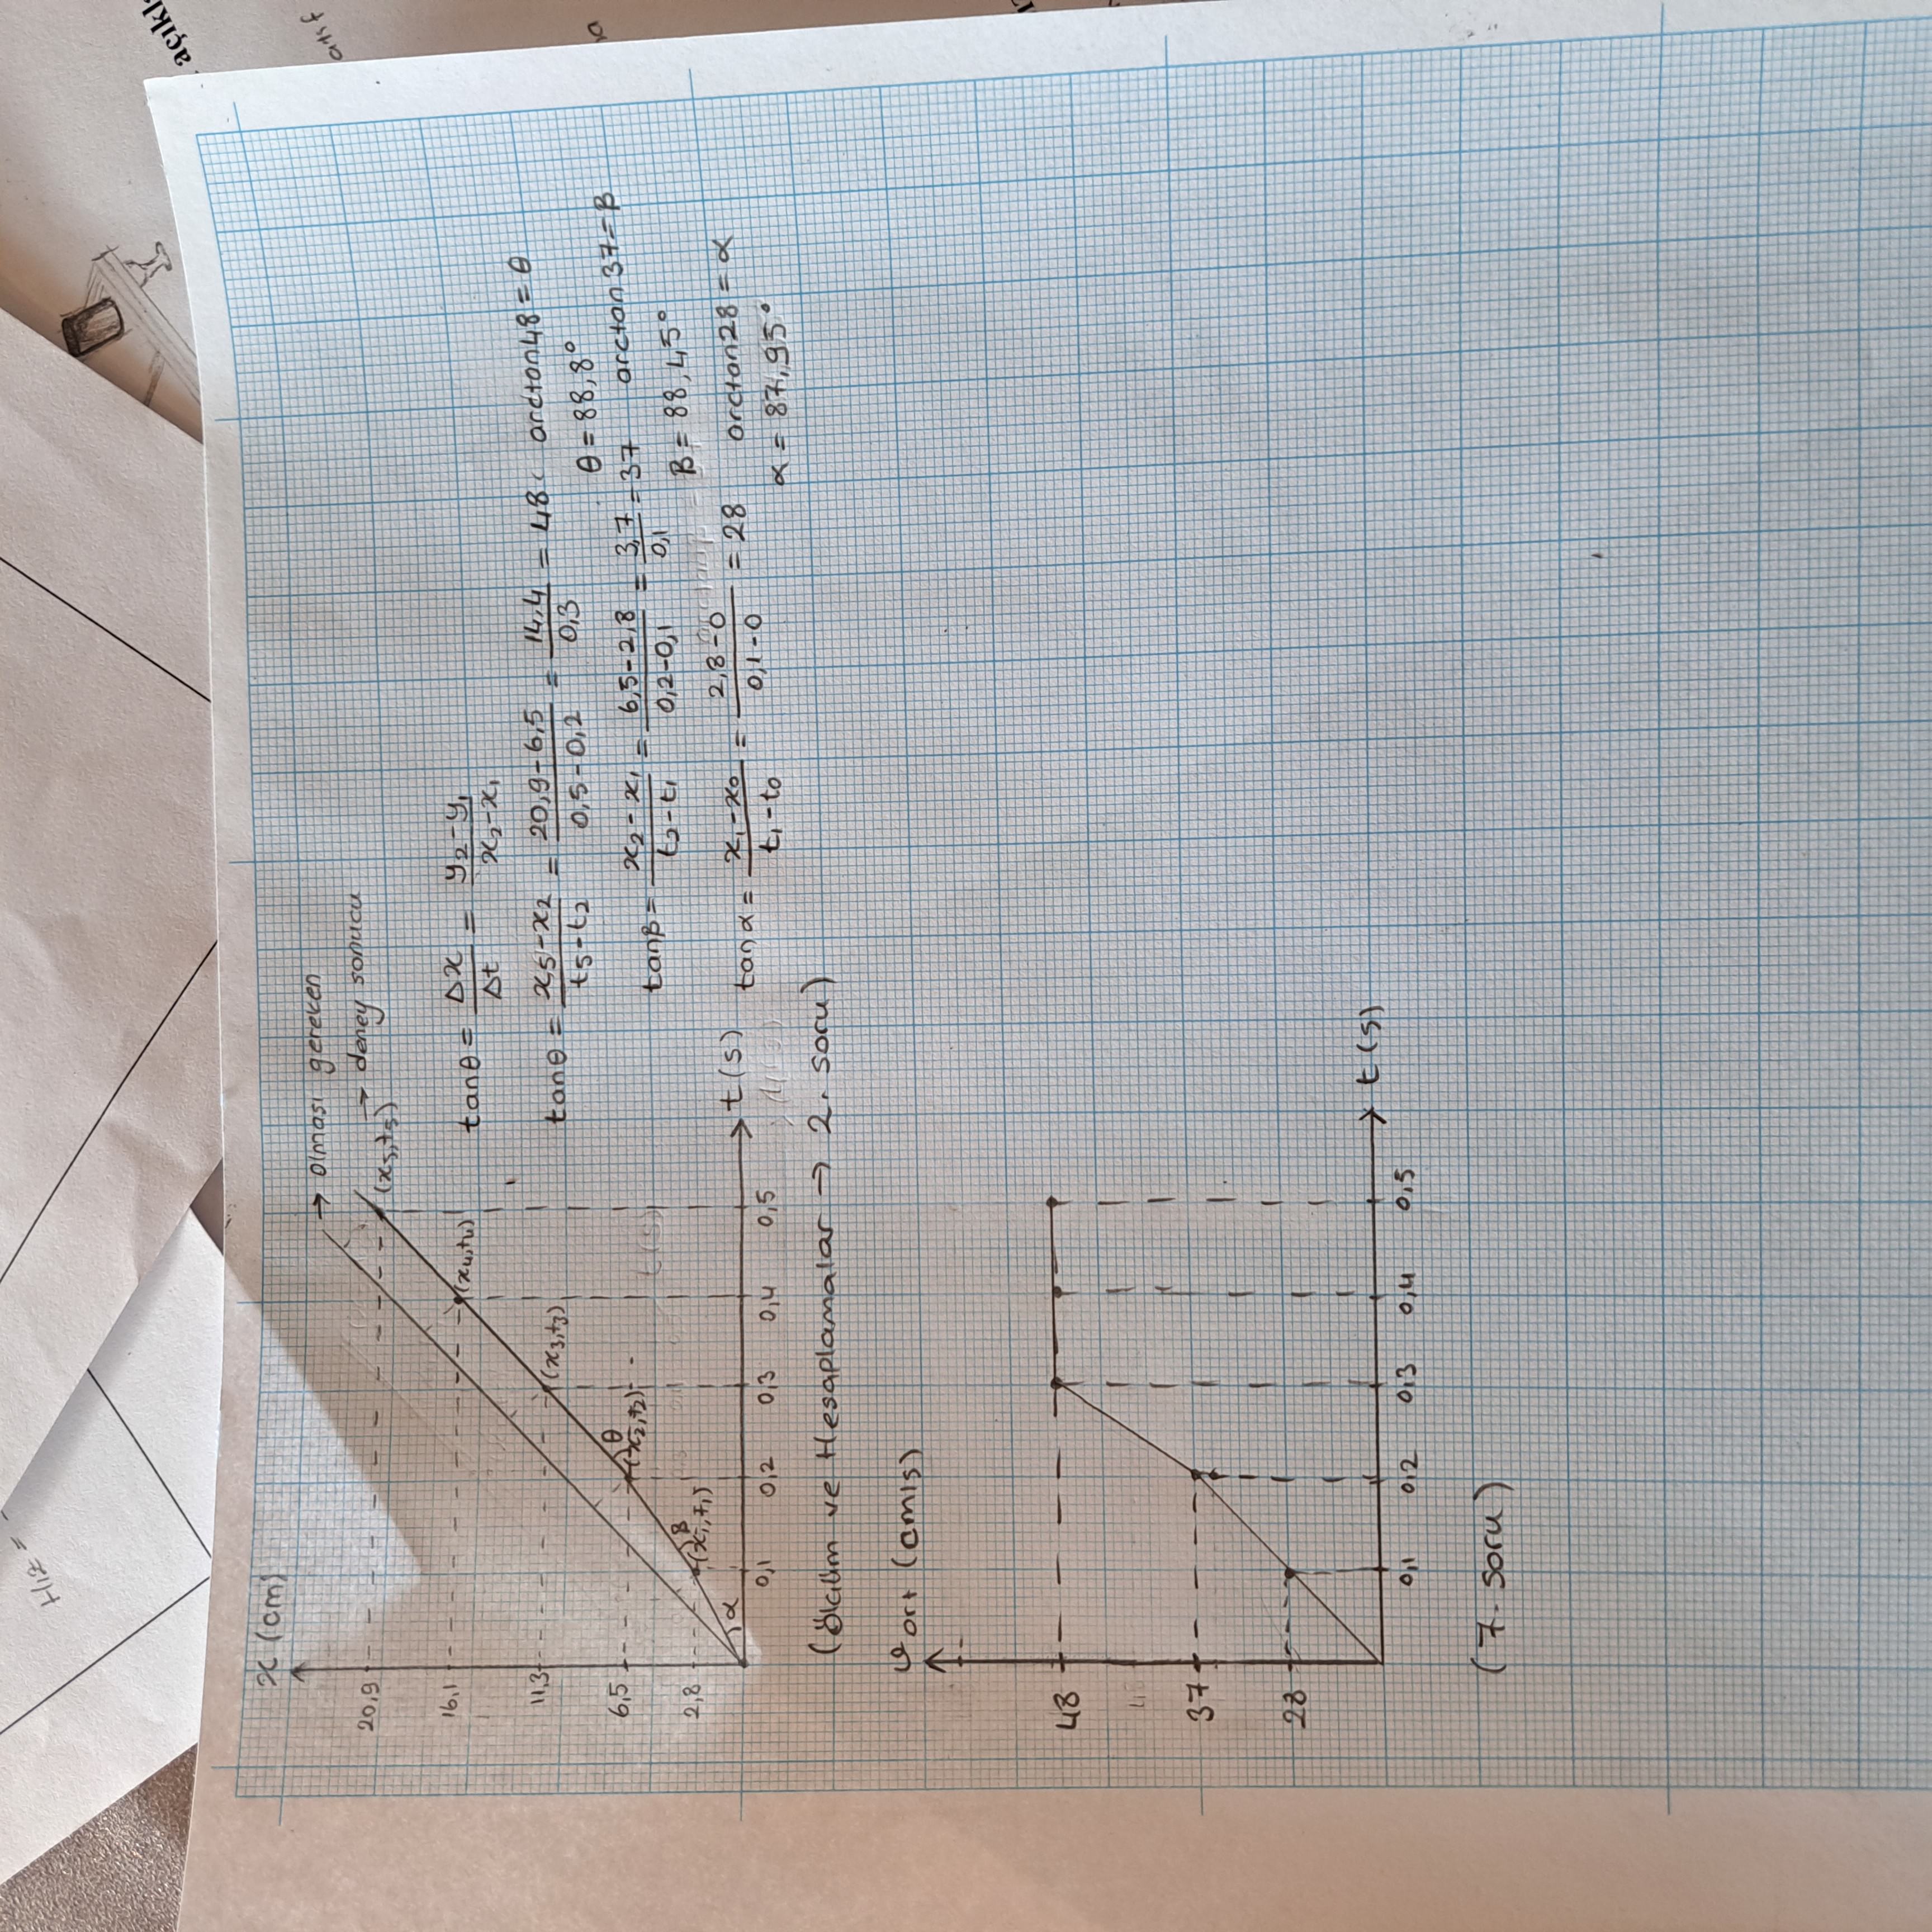 Hız =
açıkl
atıf
x (cm)
→ olması gereken
→ deney sonucu
20,9
(x₅,t₅)
16,1
(x₄,t₄)
11,3
(x₃,t₃)
6,5
θ
(x₂,t₂)
2,8
β
(x₁,t₁)
α
t (s)
0,1 0,2 0,3 0,4 0,5
tanθ = Δx/Δt = y₂-y₁/x₂-x₁
tanθ = x₅-x₂/t₅-t₂ = 20,9-6,5/0,5-0,2 = 14,4/0,3 = 48 arctan48 = θ
θ = 88,8°
tanβ = x₂-x₁/t₂-t₁ = 6,5-2,8/0,2-0,1 = 3,7/0,1 = 37 arctan 37 = β
β = 88,45°
tanα = x₁-x₀/t₁-t₀ = 2,8-0/0,1-0 = 28 arctan28 = α
α = 87,95°
(Ölçüm ve Hesaplamalar → 2. soru)
υort (cm/s)
48
37
28
t (s)
0,1 0,2 0,3 0,4 0,5
(7. soru)